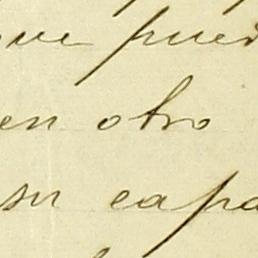 que pued
en otro
su capa